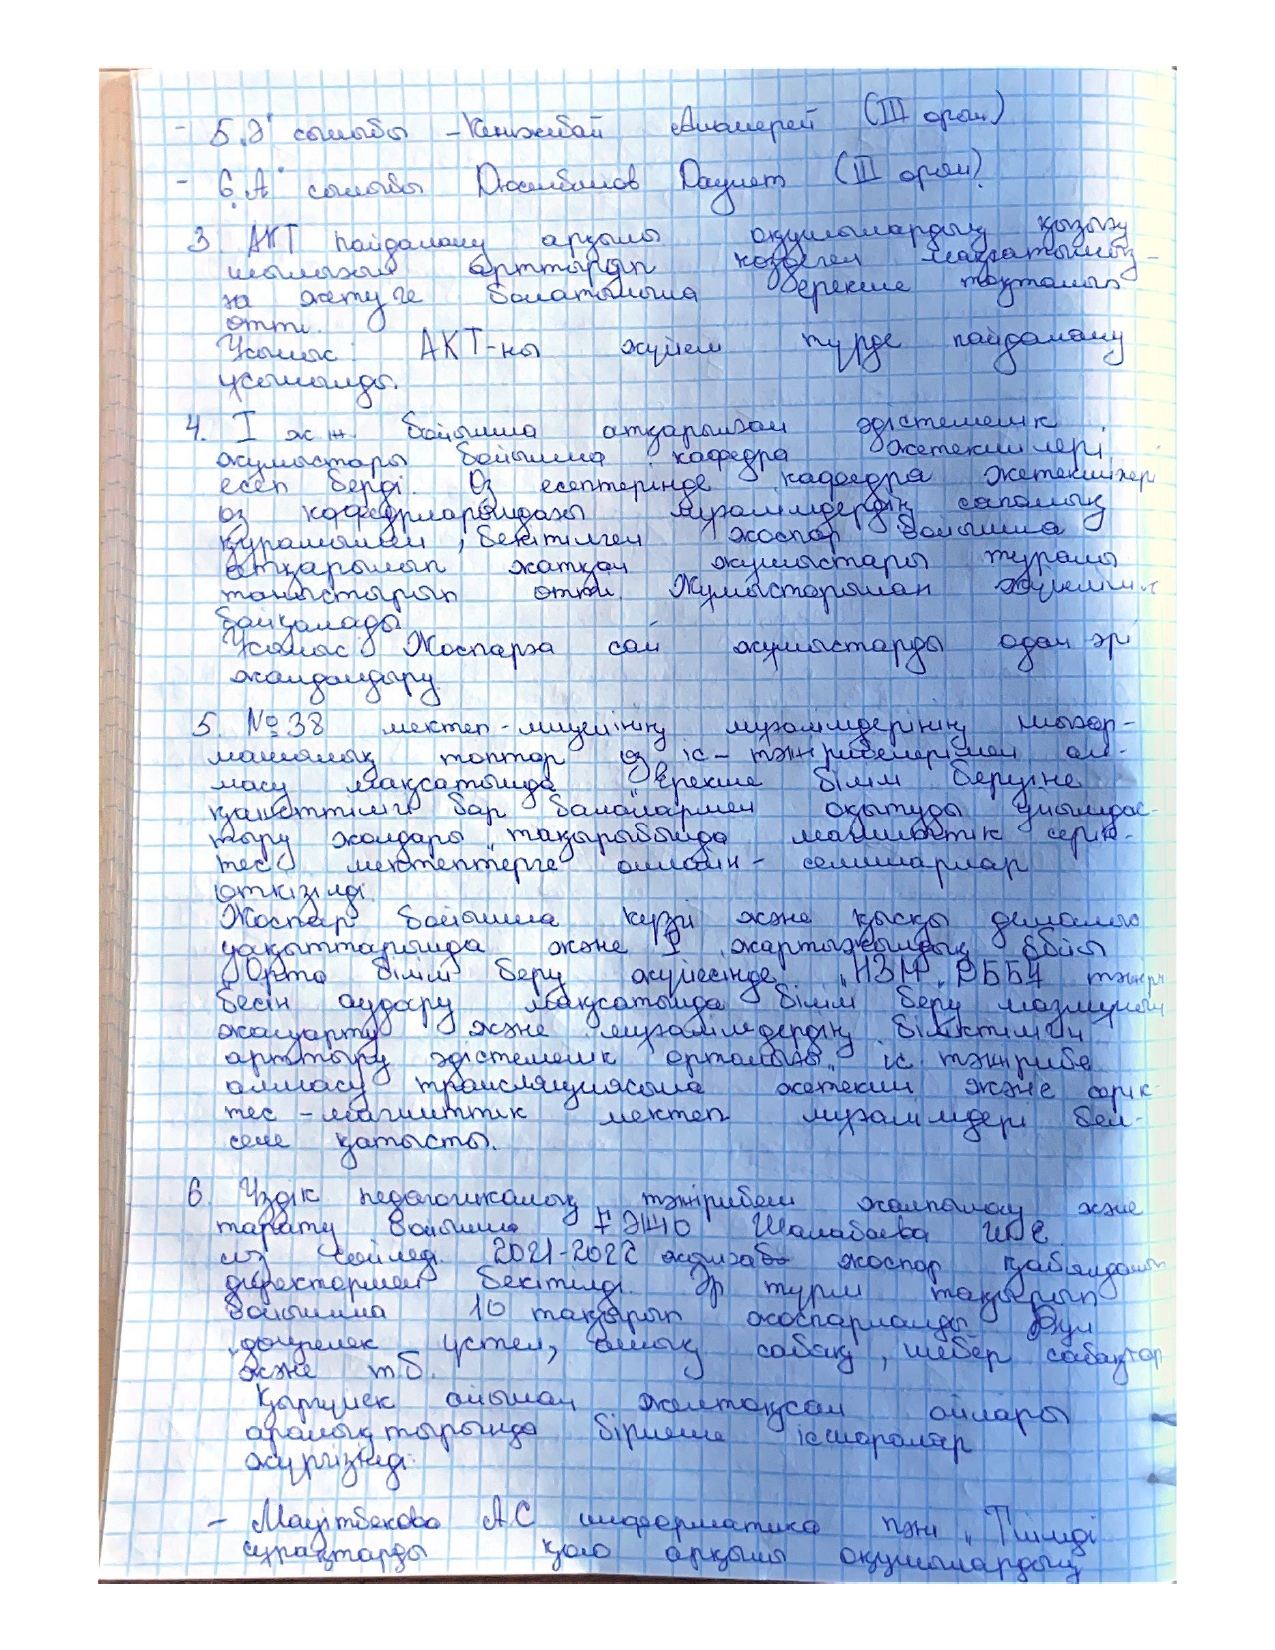 - 5 „Ә" сыныбы - Кенжебай Ақмерей (III орын)
- 6 „А" сыныбы Дюсенбинов Даулет (III орын).
3 АКТ пайдалану арқылы оқушылардың қызығу
шылығын арттырып көздеген мақсатымыз-
ға жетуге болатынына ерекше тоқталып
өтті.
Ұсыныс: АКТ-ны жүйелі түрде пайдалану
ұсынылды.
4. I ж.ж. бойынша атқарылған әдістемелік
жұмыстары бойынша кафедра жетекшілері
есеп берді. Өз есептерінде кафедра жетекшілері
өз кафедрларындағы мұғалімдердің сапалық
құрамымен, бекітілген жоспар бойынша
атқарылып жатқан жұмыстары туралы
таныстырып өтті. Жұмыстарынан жүйелілік
байқалады
Ұсыныс: Жоспарға сай жұмыстарды одан әрі
жандандыру
5. №38 мектеп-лицейінің мұғалімдерінің шығар-
машылық топтар өз іс-тәжірибелерімен ал-
масу мақсатында „Ерекше білім беруіне
қажеттілігі бар балалармен оқытуды ұйымдас-
тыру жолдары" тақырыбында магниттік серік-
тес мектептерге онлайн-семинарлар
өткізілді.
Жоспар бойынша күзгі және қысқы демалыс
уақыттарында және I жартыжылдық бойы
„Орта білім беру жүйесінде „НЗМ" РББЧ тәжіри
бесін аудару мақсатында білім беру мазмұнын
жаңарту және мұғалімдердің біліктілігін
арттыру әдістемелік орталығы" іс тәжірибе
алмасу трансляциясына жетекші және серік-
тес - магниттік мектеп мұғалімдері бел-
сене қатысты.
6. Үздік педагогикалық тәжірибені жалпылау және
тарату бойынша ҒӘЖО Шалабаева
сөз сөйледі. 2021-2022 жылға жоспар қабылданып
директормен бекітілді. Әр түрлі тақырып
бойынша 10 тақырып жоспарланды. Бұл
дөңгелек үстел, ашық сабақ, шебер сабақтар
және т.б.
Қыркүйек айынан желтоқсан айлары
аралықтарында бірнеше ісшаралар
жүргізілді.
- Мәуітбекова А.С информатика пәні „Тиімді
сұрақтарды қою арқылы оқушылардың